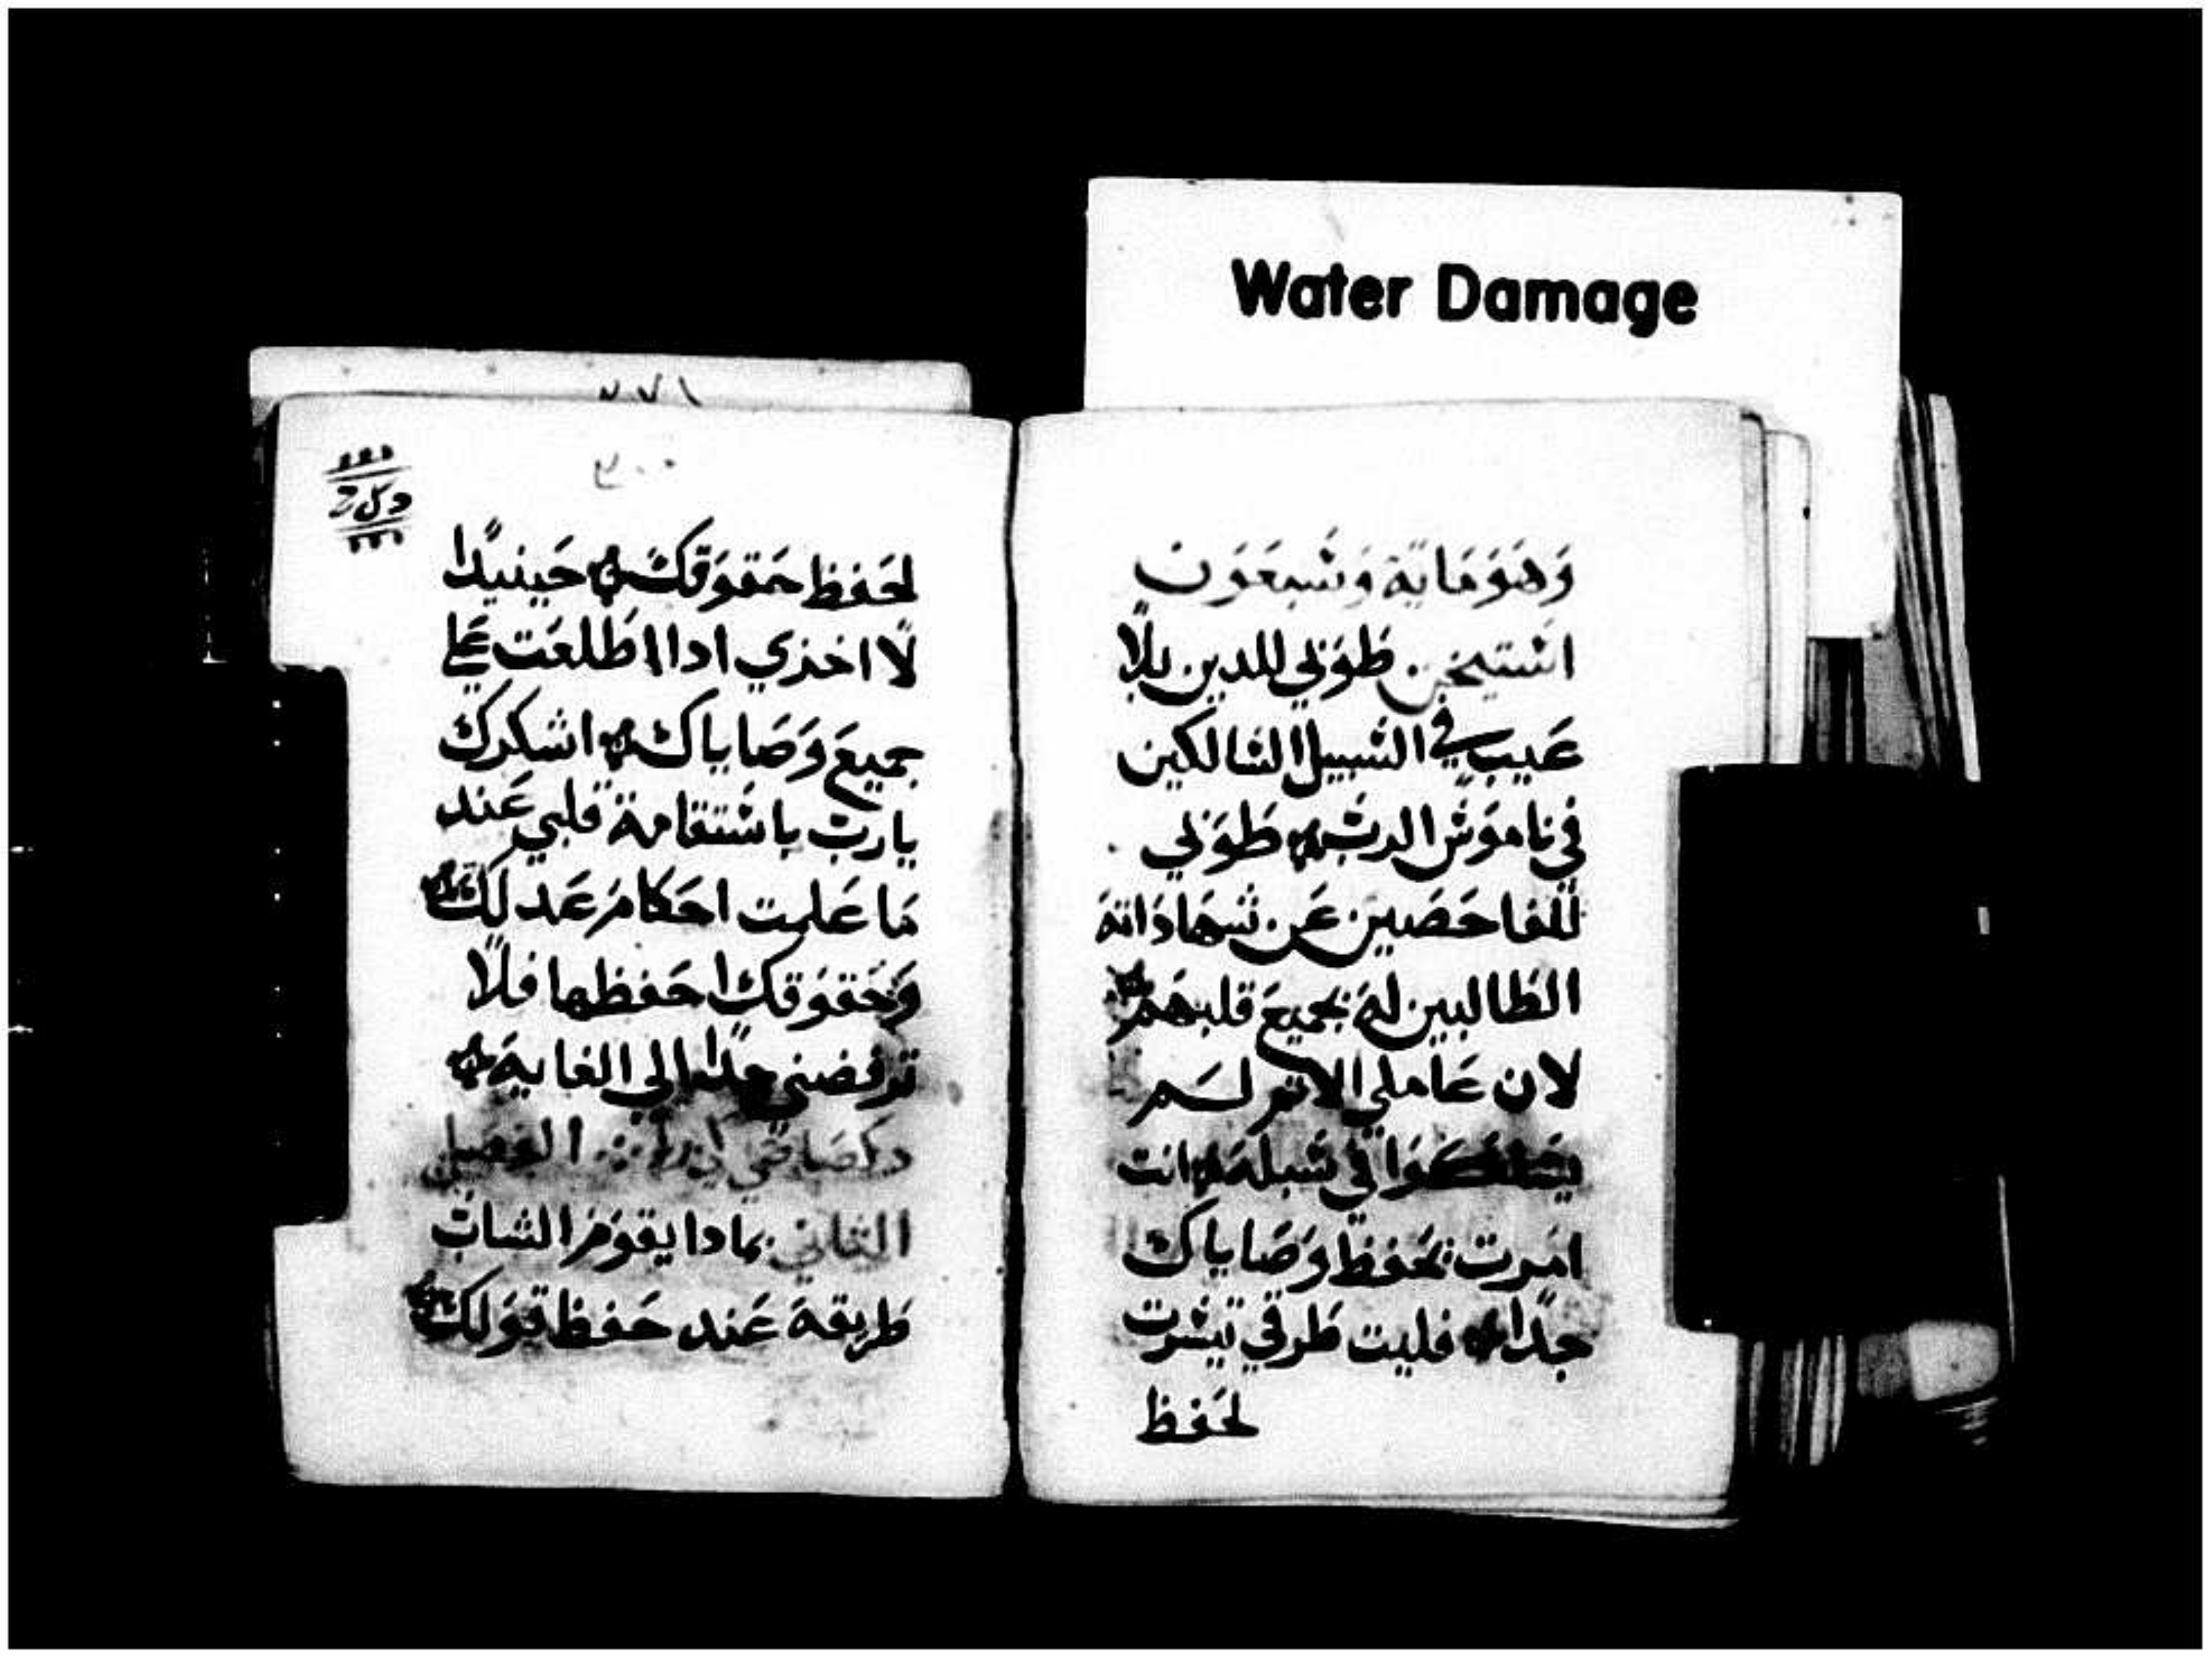 Water Damage
وهو ماية وسبعون
استيخن طوبي للدين بلا
عيب في السبيل السالكين
في ناموس الرب طوبي
للفاحصين عن شهاداته
الطالبين له بجميع قلبهم
لان عاملي الاتم لم
في سبله انت
امرت بحفظ وصاياك
جدا فليت طرقي تيسرت
لحفظ
٣٠٠
لحفظ حقوقك حينيدا
لا اخزي ادا اطلعت علي
جميع وصاياك اشكرك
يارب باستقامة قلبي عند
ما علمت احكام عدلك
وحقوقك احفظها فلا
ترفضني جدا الي الغاية
الثاني بمادا يقوم الشاب
طريقه عند حفظ قولك